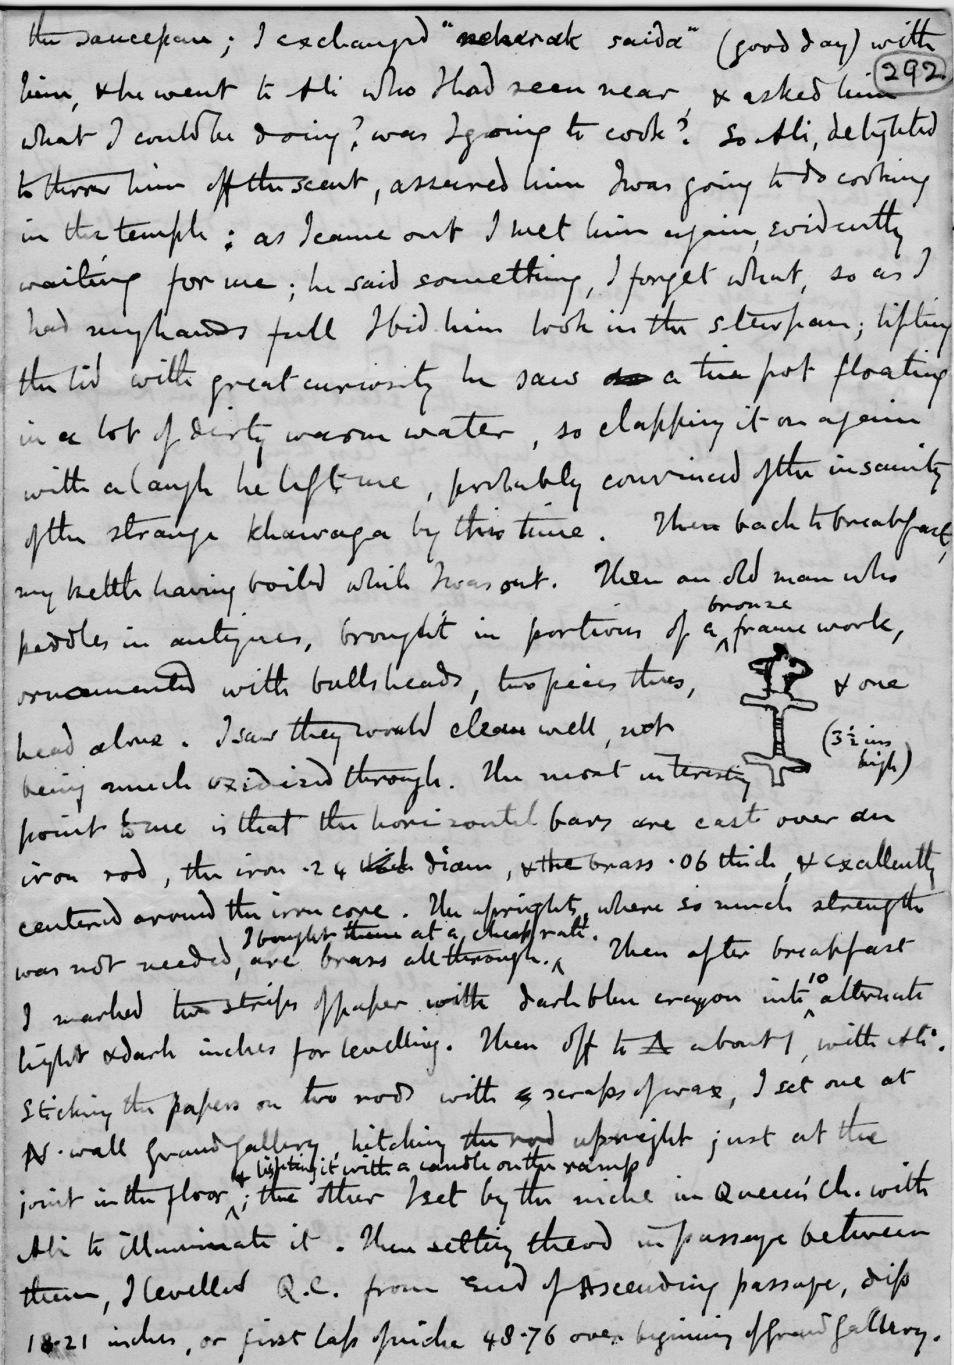 the saucepan ; I exchanged "neharak saida" (good day) with
292
him, & he went to Ali who I had seen near, & asked him
what I could be doing?, was I going to cook? So Ali, delighted
to throw him off the scent, assured him I was going to do cooking
in the temple ; as I came out I met him again, evidently
waiting for me ; he said something, I forget what, so as I
had my hands full I bid him look in the stewpan ; lifting
the lid with great curiosity he saw a tin pot floating
in a lot of dirty warm water, so clapping it on again
with a laugh he left me, probably convinced of the insanity
of the strange Khawaga by this time. Then back to breakfast,
my kettle having boiled while I was out. Then an old man who
peddles in antiques, brought in portions of a bronze frame work,
ornamented with bulls heads, two pieces thus, & one
head alone. I saw they would clean well, not (3½ ins high)
being much oxidized through. The most interesting
point to me is that the horizontal bars are cast over an
iron rod, the iron ·24 diam, & the brass ·06 thick, & excellently
centered around the iron core. The uprights, where so much strength
was not needed, are brass all through. I bought them at a cheap rate. Then after breakfast
I marked two strips of paper with dark blue crayon into 10 alternate
light & dark inches for levelling. Then off to Δ about 1, with Ali.
Sticking the papers on two rods with scraps of wax, I set one at
N. wall grand gallery, hitching the rod upright just at the
joint in the floor & lighting it with a candle on the ramp ; the other I set by the niche in Queen's Ch. with
Ali to illuminate it. Then setting theod in passage between
them, I levelled Q.C. from end of Ascending passage, dip
18·21 inches, or first lap of niche 48·76 over beginning of grand gallery.